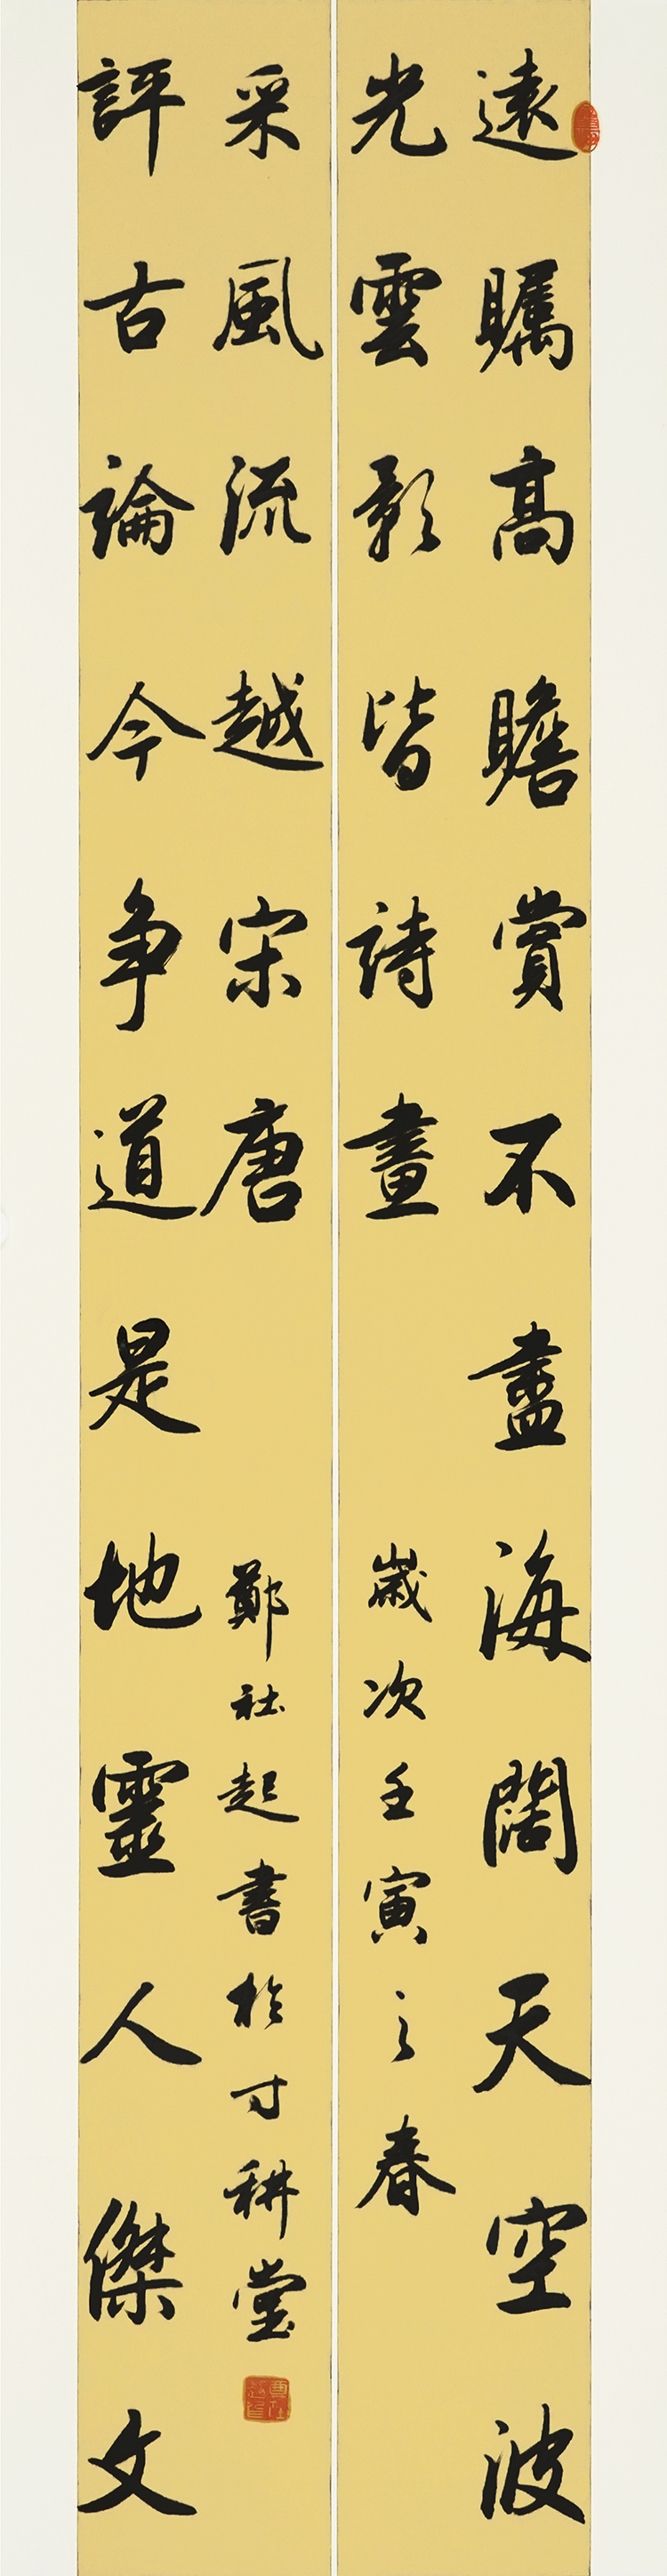 遠矚高瞻賞不盡海闊天空波
光雲影皆詩畫
歲次壬寅之春
評古論今争道是地靈人傑文
采風流越宋唐
鄭社起書於寸耕堂